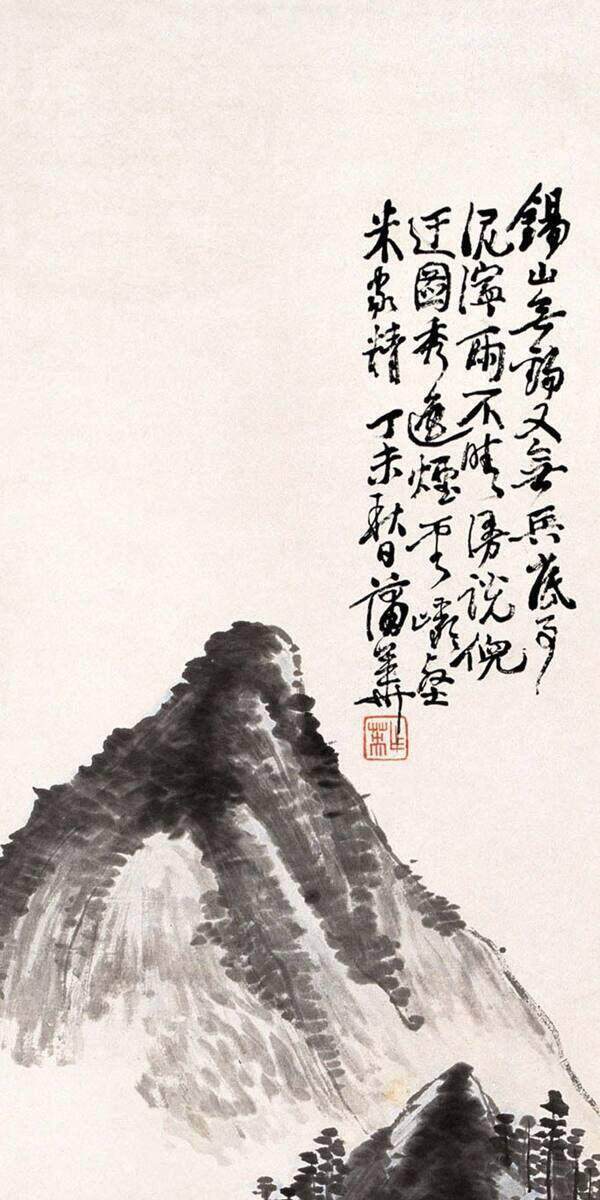 錫山無錫又無兵底事
泥濘雨不晴漫說倪
迂圖秀逸煙雲壑
米家精 丁未秋日蒲華